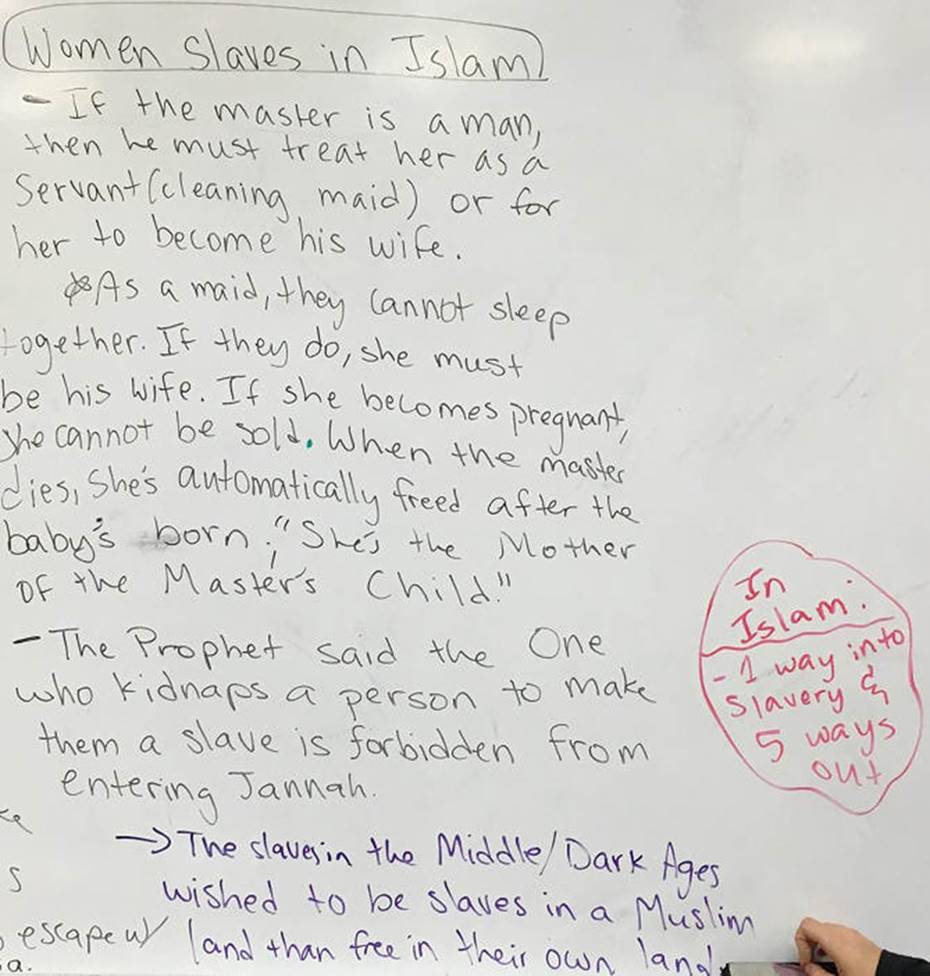 Women Slaves in Islam
- If the master is a man,
then he must treat her as a
Servant (cleaning maid) or for
her to become his wife.
*As a maid, they cannot sleep
together. If they do, she must
be his wife. If she becomes pregnant,
she cannot be sold. When the master
dies, She's automatically freed after the
baby's born; "She's the Mother
OF the Master's Child."
- The Prophet said the One
who kidnaps a person to make
them a slave is forbidden from
entering Jannah.
→ The slaves in the Middle/Dark Ages
wished to be slaves in a Muslim
land than free in their own land
In
Islam:
- 1 way into
Slavery &
5 ways
out
s
escape w/
a.